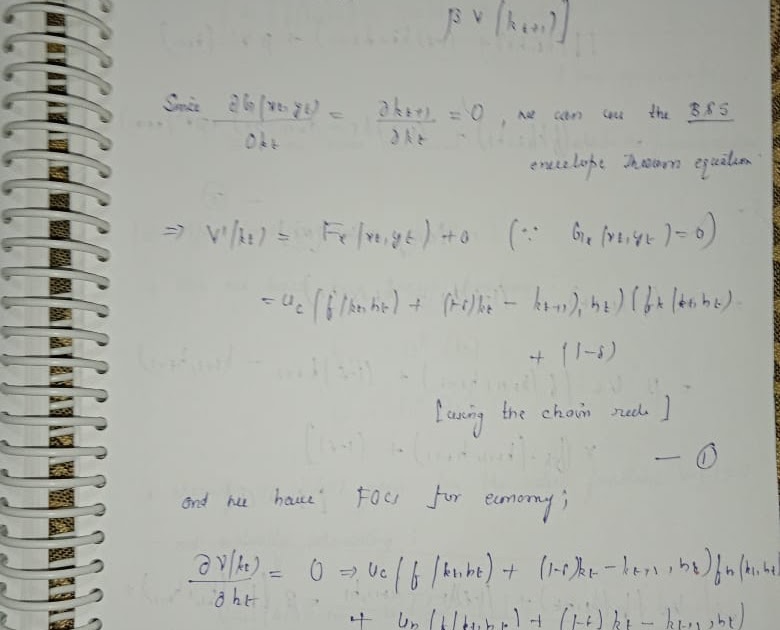 β V (k_{t+1})]
Since ∂G(x_t, y_t)/∂k_t = ∂k_{t+1}/∂k_t = 0, we can use the BSS
envelope Theorem equation
⇒ V'(k_t) = F_x(x_t, y_t) + 0 (∵ G_x(x_t, y_t) = 0)
= u_c (f(k_t, h_t) + (1-δ)k_t - k_{t+1}), h_t) (f_k(k_t, h_t)
+ (1-δ)
[using the chain rule]
— ①
and we have FOCs for economy;
∂V(k_t)/∂h_t = 0 ⇒ u_c (f(k_t, h_t) + (1-δ)k_t - k_{t+1}, h_t) f_h(k_t, h_t
+ u_h (f(k_t, h_t) + (1-δ) k_t - k_{t+1}, h_t)